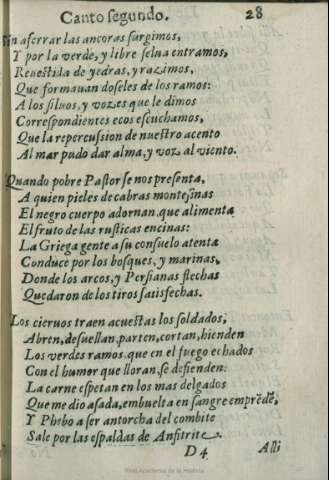 Canto segundo. 28
Sin aferrar las ancoras surgimos,
Y por la verde, y libre selua entramos,
Reuestida de yedras, y razimos,
Que formauan doseles de los ramos:
A los siluos, y vozes que le dimos
Correspondientes ecos escuchamos,
Que la repercussion de nuestro acento
Al mar pudo dar alma, y voz al viento.
Quando pobre Pastor se nos presenta,
A quien pieles de cabras montesinas
El negro cuerpo adornan, que alimenta
El fruto de las rusticas encinas:
La Griega gente a su consuelo atenta
Conduce por los bosques, y marinas,
Donde los arcos, y Persianas flechas
Quedaron de los tiros satisfechas.
Los cieruos traen acuestas los soldados;
Abren, desuellan, parten, cortan, hienden
Los verdes ramos, que en el fuego echados
Con el humor que lloran, se defienden:
La carne espetan en los mas delgados
Que medio asada, embuelta en sangre emprẽdẽ,
Y Phebo a ser antorcha del combite
Sale por las espaldas de Anfitrite.
D 4 Alli
Real Academia de la Historia